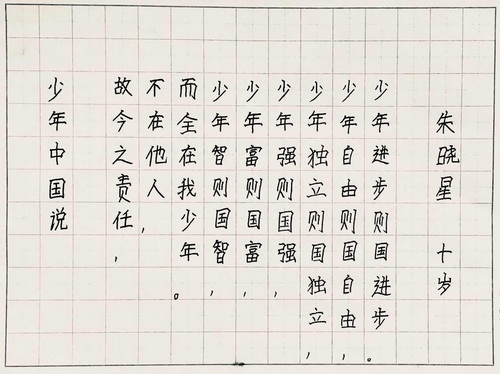 少年中国说
故今之责任，
不在他人，
而全在我少年。
少年智则国智，
少年富则国富，
少年强则国强，
少年独立则国独立，
少年自由则国自由，
少年进步则国进步。
朱晓星 十岁